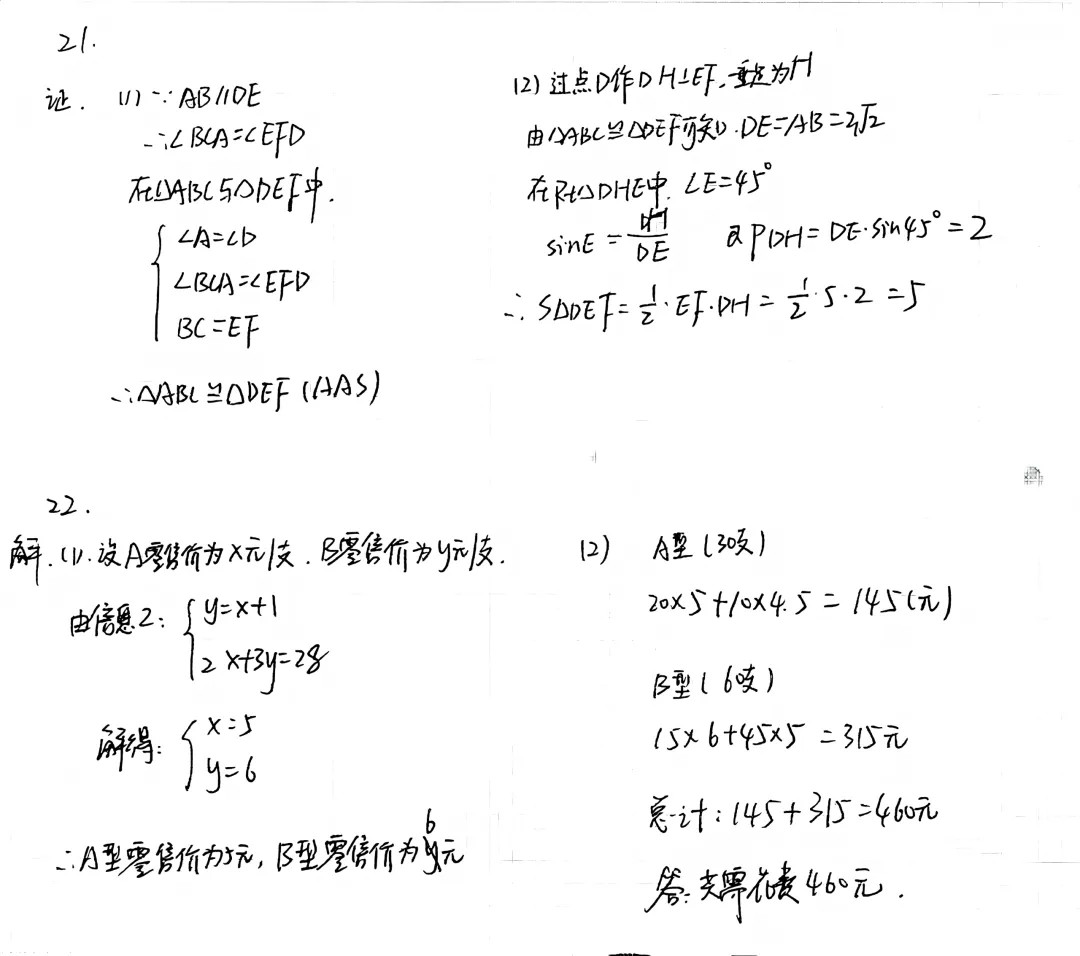 21.
证. (1) ∵AB//DE
∴∠BCA=∠EFD
在△ABC与△DEF中.
{∠A=∠D
∠BCA=∠EFD
BC=EF
∴△ABC≌△DEF (AAS)
(2) 过点D作DH⊥EF,垂足为H
由△ABC≌△DEF可知.DE=AB=2√2
在Rt△DHE中,∠E=45°
sinE=DH/DE 即DH=DE·sin45°=2
∴S△DEF=1/2·EF·DH=1/2·5·2=5
22.
解.(1).设A零售价为x元/支.B零售价为y元/支.
由信息2:{y=x+1
2x+3y=28
解得:{x=5
y=6
∴A型零售价为5元,B型零售价为6元
(2) A型(30支)
20×5+10×4.5=145(元)
B型(60支)
15×6+45×5=315元
总计:145+315=460元
答:共需花费460元.